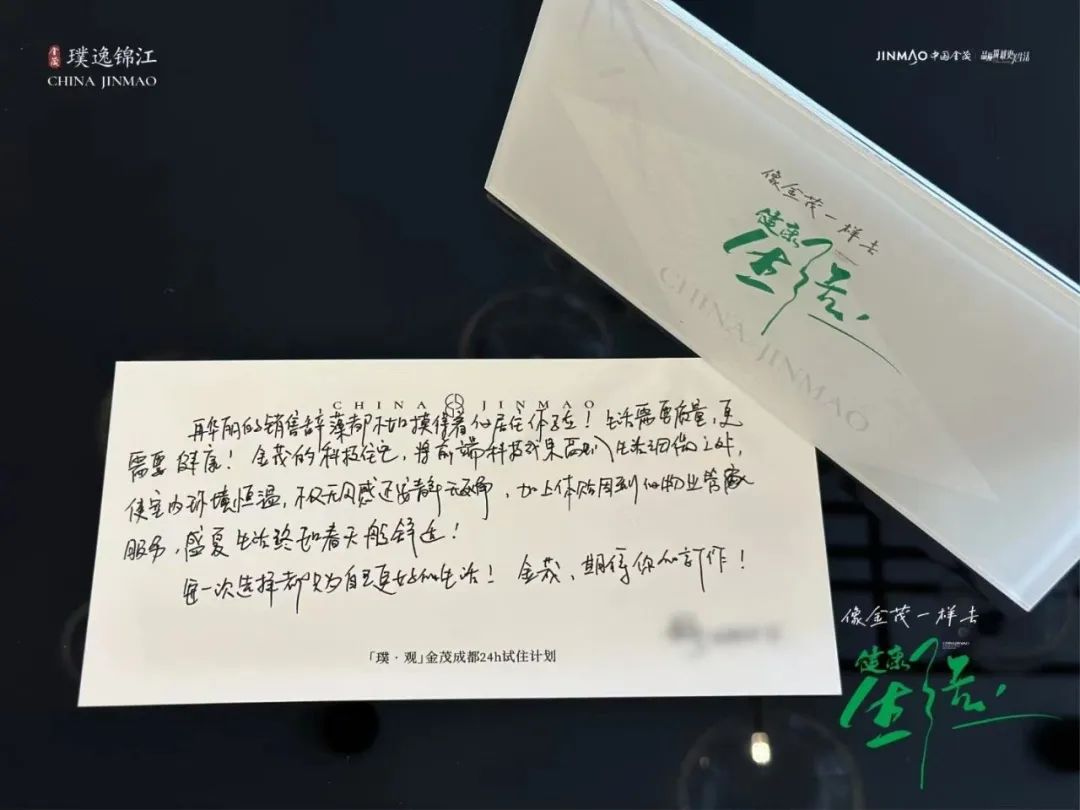 金茂
璞逸锦江
CHINA JINMAO
JINMAO 中国金茂
像金茂一样去
健康
生活
CHINA JINMAO
CHINA JINMAO
再华丽的销售辞藻都不如摸得着的居住体验!生活需要质量,更
需要健康!金茂的科技住宅,将前端科技成果 到生活细微之处,
使室内环境恒温,不仅无风感还安静无噪声,加上体贴周到的物业管家
服务,盛夏生活终如春天般舒适!
每一次选择都只为自己更好的生活!金茂,期待你的新作!
「璞·观」金茂成都24h试住计划
像金茂一样去
健康
生活